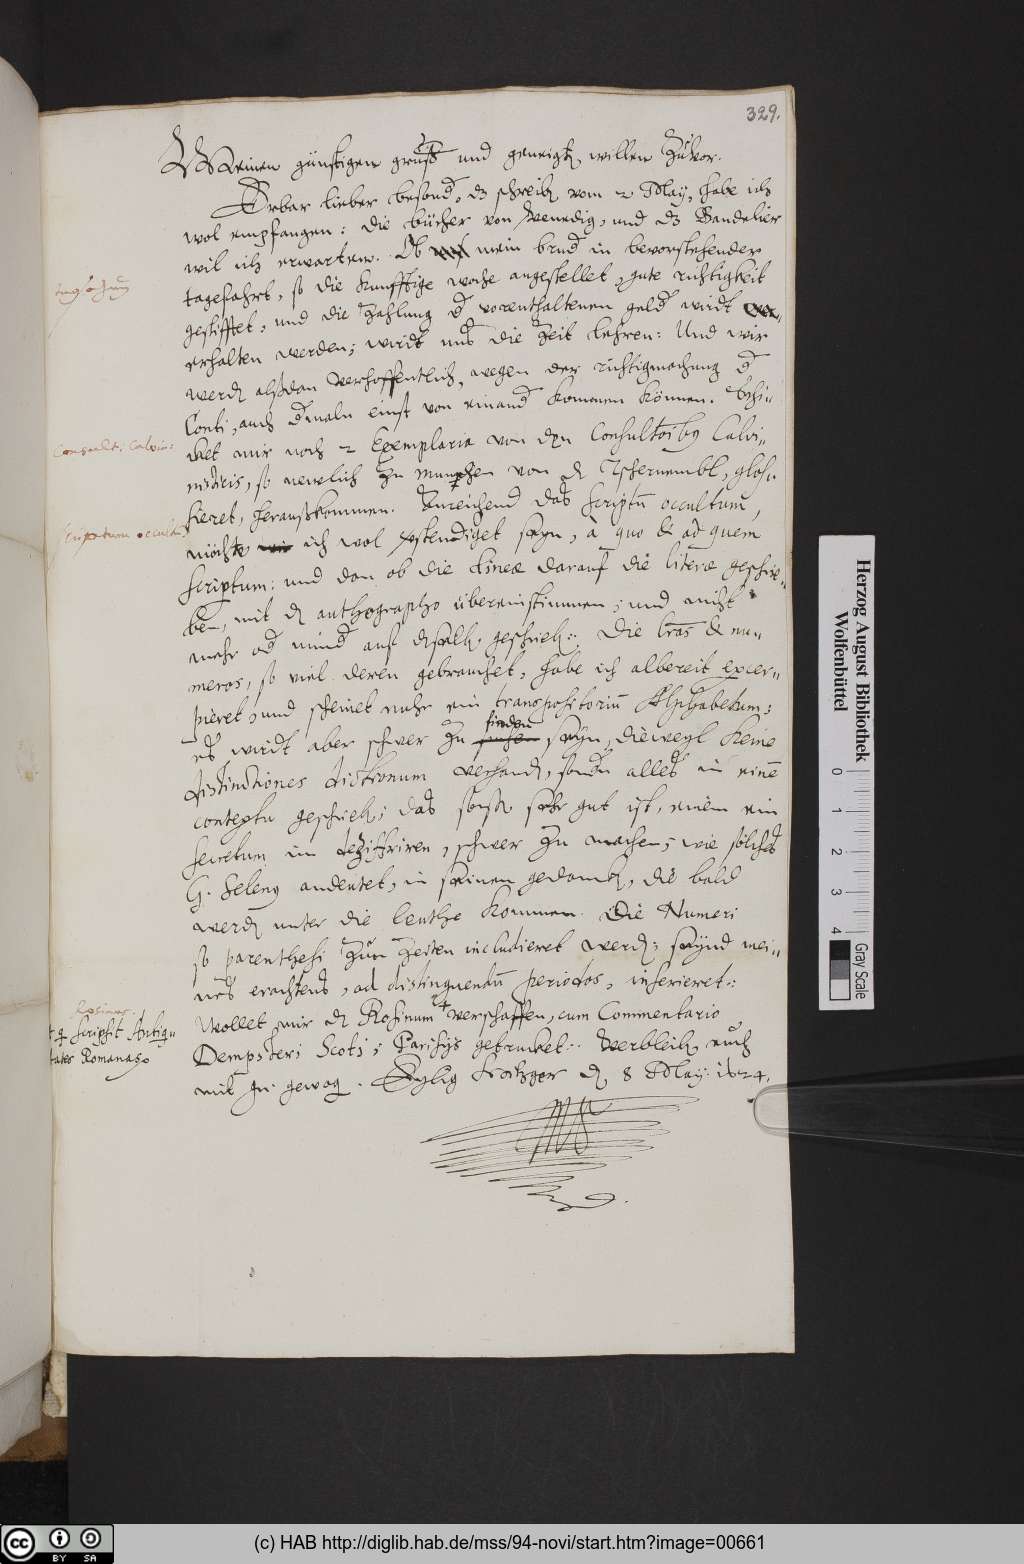 329.
Meinen günstigen gruß und geneigt. willen Zuvor.
Erbar lieber besond. dz schreib. vom 2 May, habe ich
wol empfangen: die bücher von Venedig, und dz Bandelier
wil ich erwarten. Ob mein brud. in bevorstehender
tagefahrt, so die kunfftige woche angestellet, gute richtigkeit
gestifftet, und die Zahlung d. vorenthaltenen geld. wirdt
erhalten werden; wirdt unß die Zeit lehren: Und wir
werd. alßdan verhoffentlich, wegen der richtigmachung d.
Conti, auch dmaln einst von einand. kommen können. Schi-
cket mir noch 2 Exemplaria von den Consultorib9 Calvi-
nisticis, so newlich zu Munchen von d. Tschernembl, glos-
sieret, heraußkommen. Anreichend das scriptu occultum,
möchte ich wol verstendiget seyn, à quo & ad quem
scriptum: und dan ob die lineæ darauf die literæ geschrie-
ben, mit d. authographo übereinstimmen; und nicht
mehr od. mind. auf dselb. geschrieb.: Die lras & nu-
meros, so viel deren gebrauchet, habe ich albereit excer-
pieret, und scheinet mehr ein transpositoriu Alphabetum;
es wirdt aber schwer zu finden seyn, dieweyl keine
distinctiones dictionum verhand., sond.n alles in eine
contextu geschrieb; das sonst sehr gut ist, einem ein
secretum im deziffriren, schwer zu machen; wie solches
G. Seleny andeutet, in seinen gedanck., die bald
werd. unter die leuthe kommen. Die Numeri
so parenthesi Zun Zeiten includieret werd; seynd mei-
nes erachtens, ad distinguendu periodos, inserieret.:
Wollet mir d. Rosinum + verschaffen, cum Commentario
Dempsteri Scoti; Parisijs getrucket.: Verbleib. euch
mit gn. gewog. Eylig d. 8 May. 1624.
Consult. Calvin:
scriptum occult.
Rosinus.
+ q scripsit Antiqui-
tates Romanas
Herzog August Bibliothek
Wolfenbüttel
0 1 2 3 4
Gray Scale
cc BY SA
(c) HAB http://diglib.hab.de/mss/94-novi/start.htm?image=00661